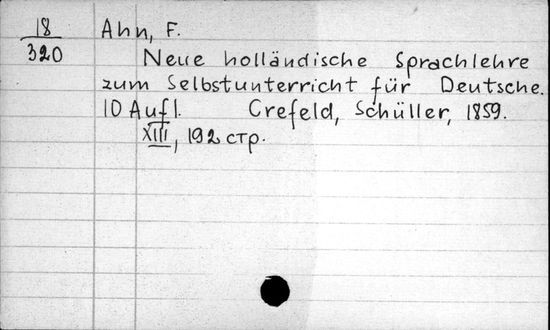 18 Ahn, F.
320 Neue holländische Sprachlehre
zum Selbstunterricht für Deutsche.
10 Aufl. Crefeld, Schüller, 1859.
XIII, 192 стр.